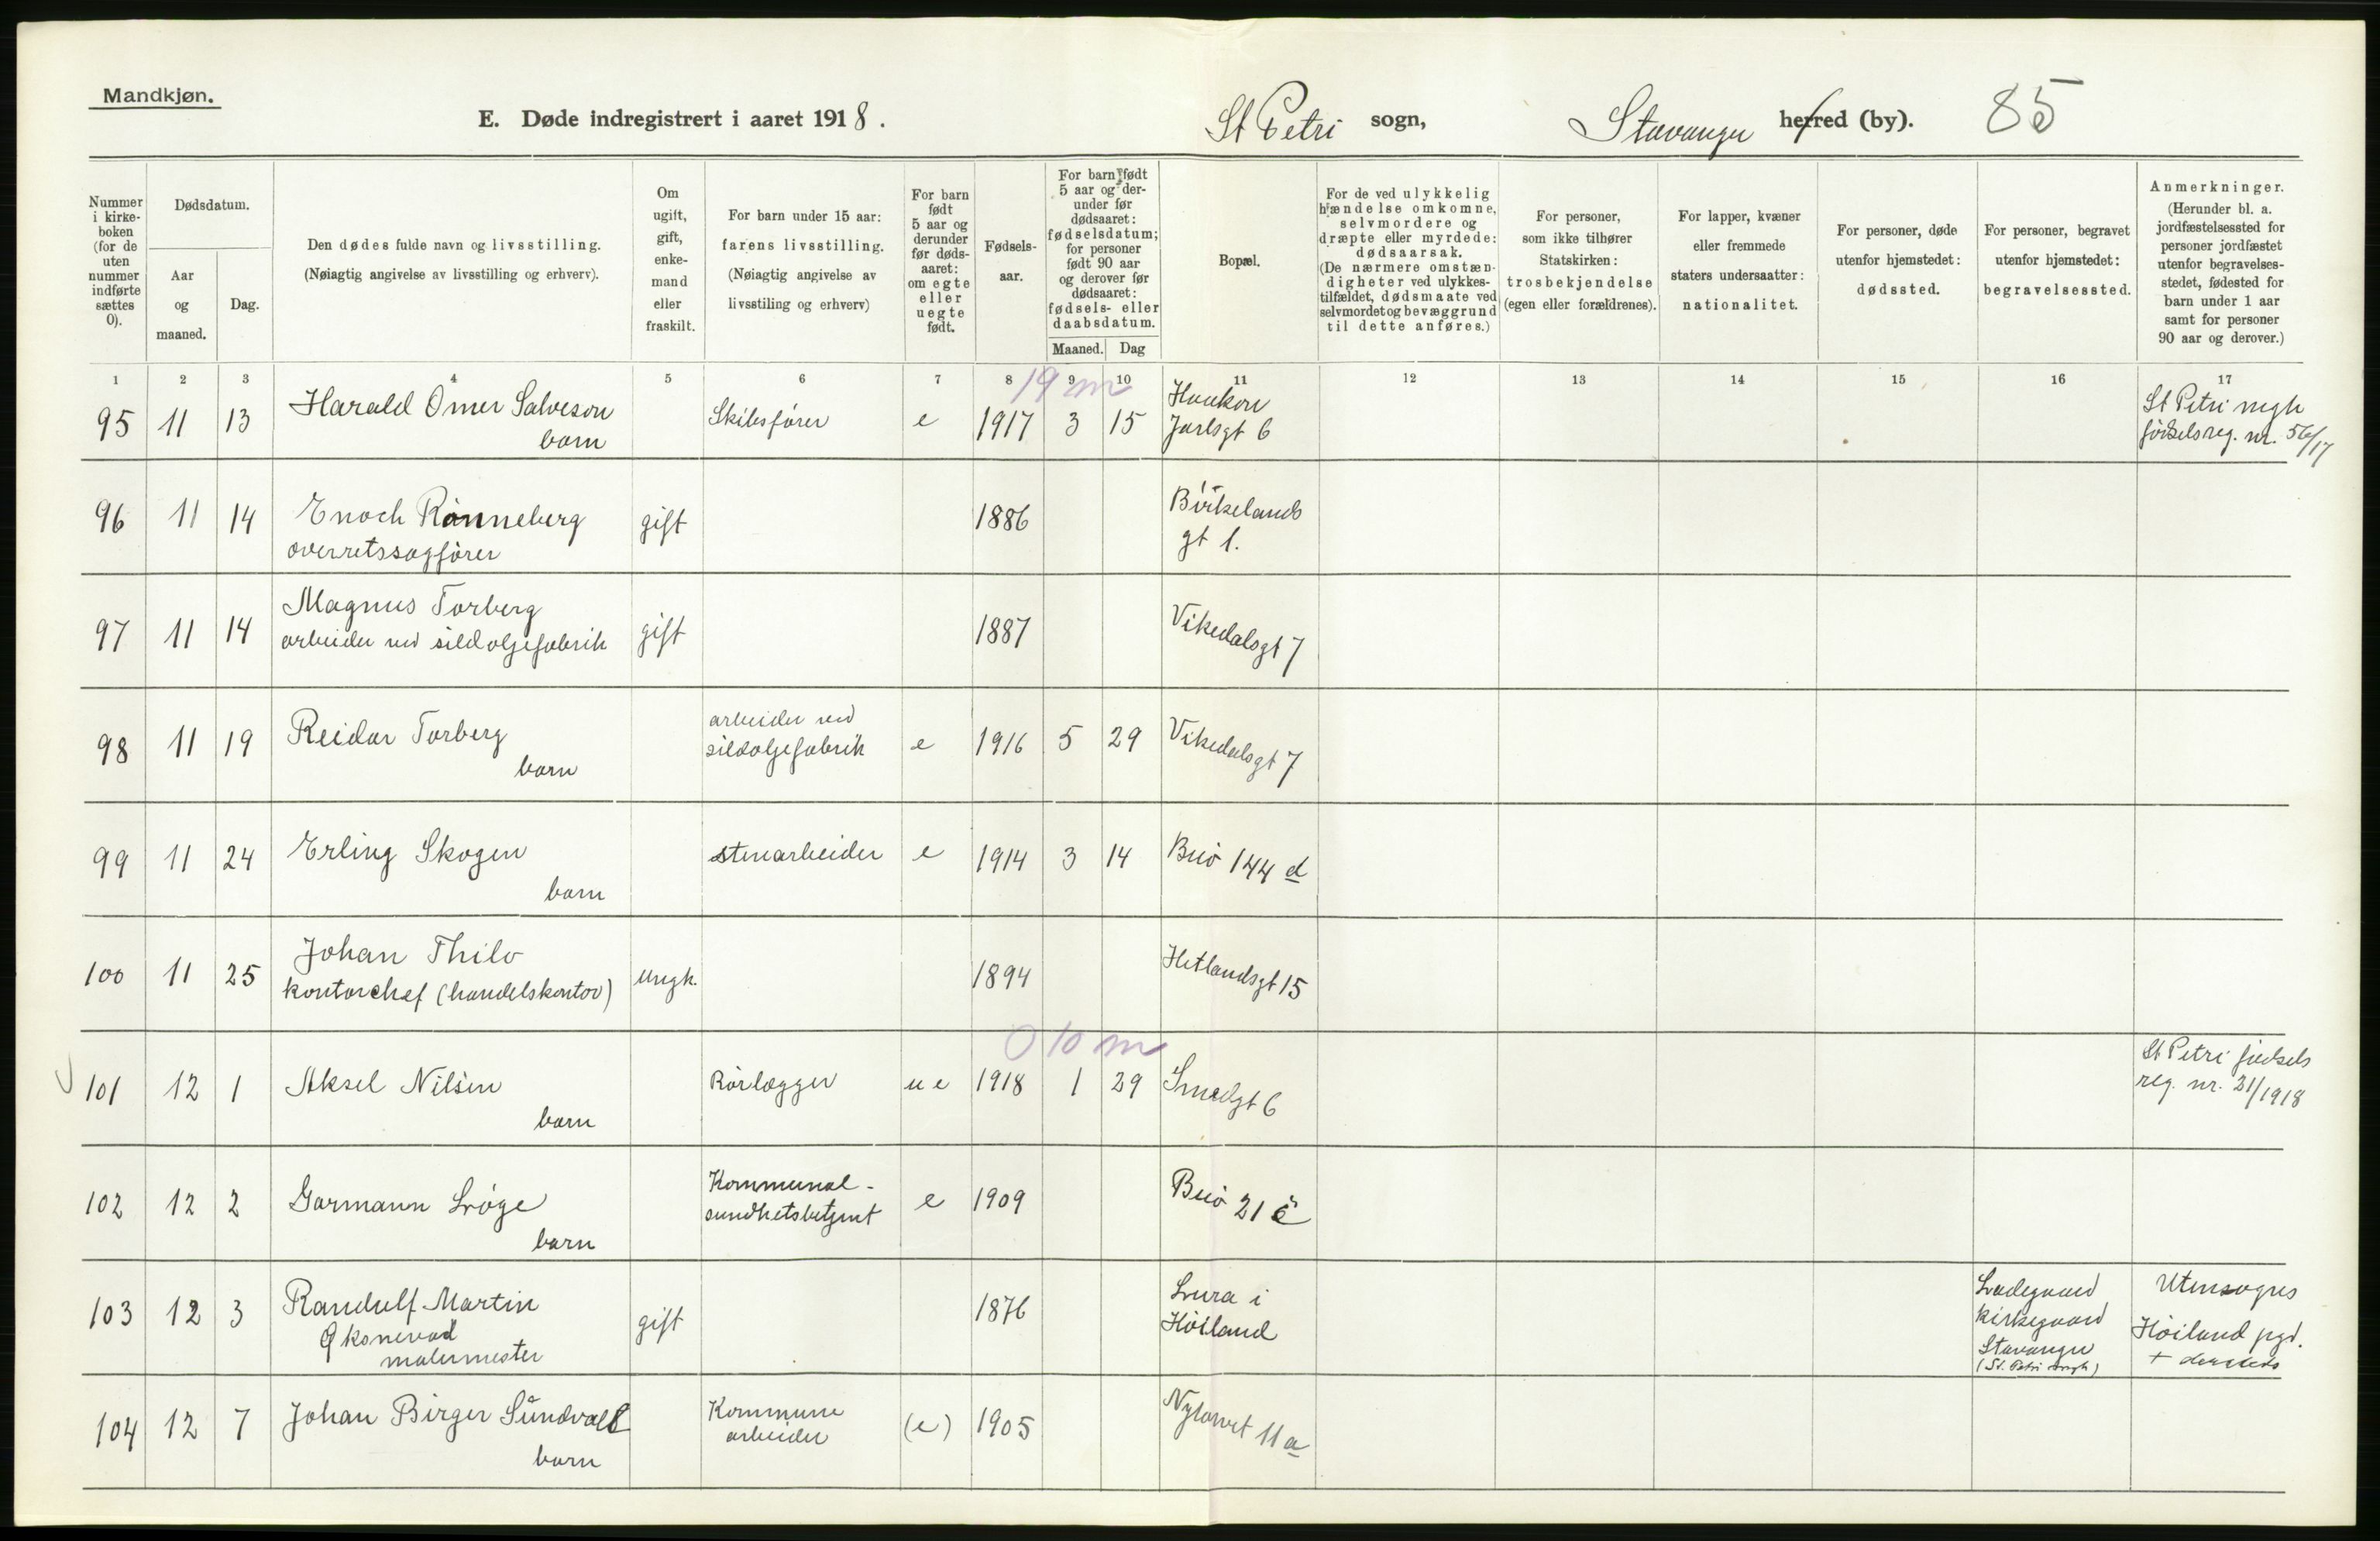 Mandkjøn.
E. Døde indregistrert i aaret 1918.
St Petri sogn,
Stavanger herred (by).
85
Nummer i kirke-boken (for de uten nummer indførte sættes 0).
Dødsdatum.
Aar og maaned.
Dag.
Den dødes fulde navn og livsstilling.
(Nøiagtig angivelse av livsstilling og erhverv).
Om ugift, gift, enke-mand eller fraskilt.
For barn under 15 aar:
farens livsstilling.
(Nøiagtig angivelse av
livsstiling og erhverv)
For barn født 5 aar og derunder før døds-aaret: om egte eller uegte født.
Fødsels-aar.
For barn født 5 aar og der-under før dødsaaret: fødselsdatum; for personer født 90 aar og derover før dødsaaret: fødsels- eller daabsdatum.
Maaned. Dag
Bopæl.
For de ved ulykkelig hændelse omkomne, selvmordere og dræpte eller myrdede: dødsaarsak.
(De nærmere omstæn-digheter ved ulykkes-tilfældet, dødsmaate ved selvmordet og bevæggrund til dette anføres.)
For personer, som ikke tilhører Statskirken: trosbekjendelse (egen eller forældrenes).
For lapper, kvæner eller fremmede staters undersaatter: nationalitet.
For personer, døde utenfor hjemstedet: dødssted.
For personer, begravet utenfor hjemstedet: begravelsessted.
Anmerkninger.
(Herunder bl. a. jordfæstelsessted for personer jordfæstet utenfor begravelses-stedet, fødested for barn under 1 aar samt for personer 90 aar og derover.)
1 2 3 4 5 6 7 8 9 10 11 12 13 14 15 16 17
19 m
95 11 13 Harald Omer Salveson
barn
Skibsfører e 1917 3 15 Haakon
Jarlsgt 6
St Petri mgh
fødselsreg. nr. 56/17
96 11 14 Enoch Rønneberg
overretssagfører
gift 1886 Birkelands
gt 1.
97 11 14 Magnus Torberg
arbeider ved sildoljefabrik
gift 1887 Vikedalsgt 7
98 11 19 Reidar Torberg
barn
arbeider ved
sildoljefabrik
e 1916 5 29 Vikedalsgt 7
99 11 24 Erling Skogen
barn
stenarbeider e 1914 3 14 Buø 144 d
100 11 25 Johan Thilo
kontorchef (handelskontor)
ungk. 1894 Hetlandsgt 15
0 10 m
101 12 1 Aksel Nilsen
barn
Rørlægger u e 1918 1 29 Smedgt 6
St Petri fødsels
reg. nr. 21/1918
102 12 2 Garmann Lröge
barn
Kommunal-
sundhetsbetjent
e 1909 Buø 21 c
103 12 3 Randulf Martin
Oksnevad
malermester
gift 1876 Lura i
Høiland
Ladegaard
kirkegaard
Stavanger
(St. Petri mgh)
Utensogns
Høiland pgd.
104 12 7 Johan Birger Sundvall
barn
Kommune
arbeider
(e) 1905 Nytorvet 11 a